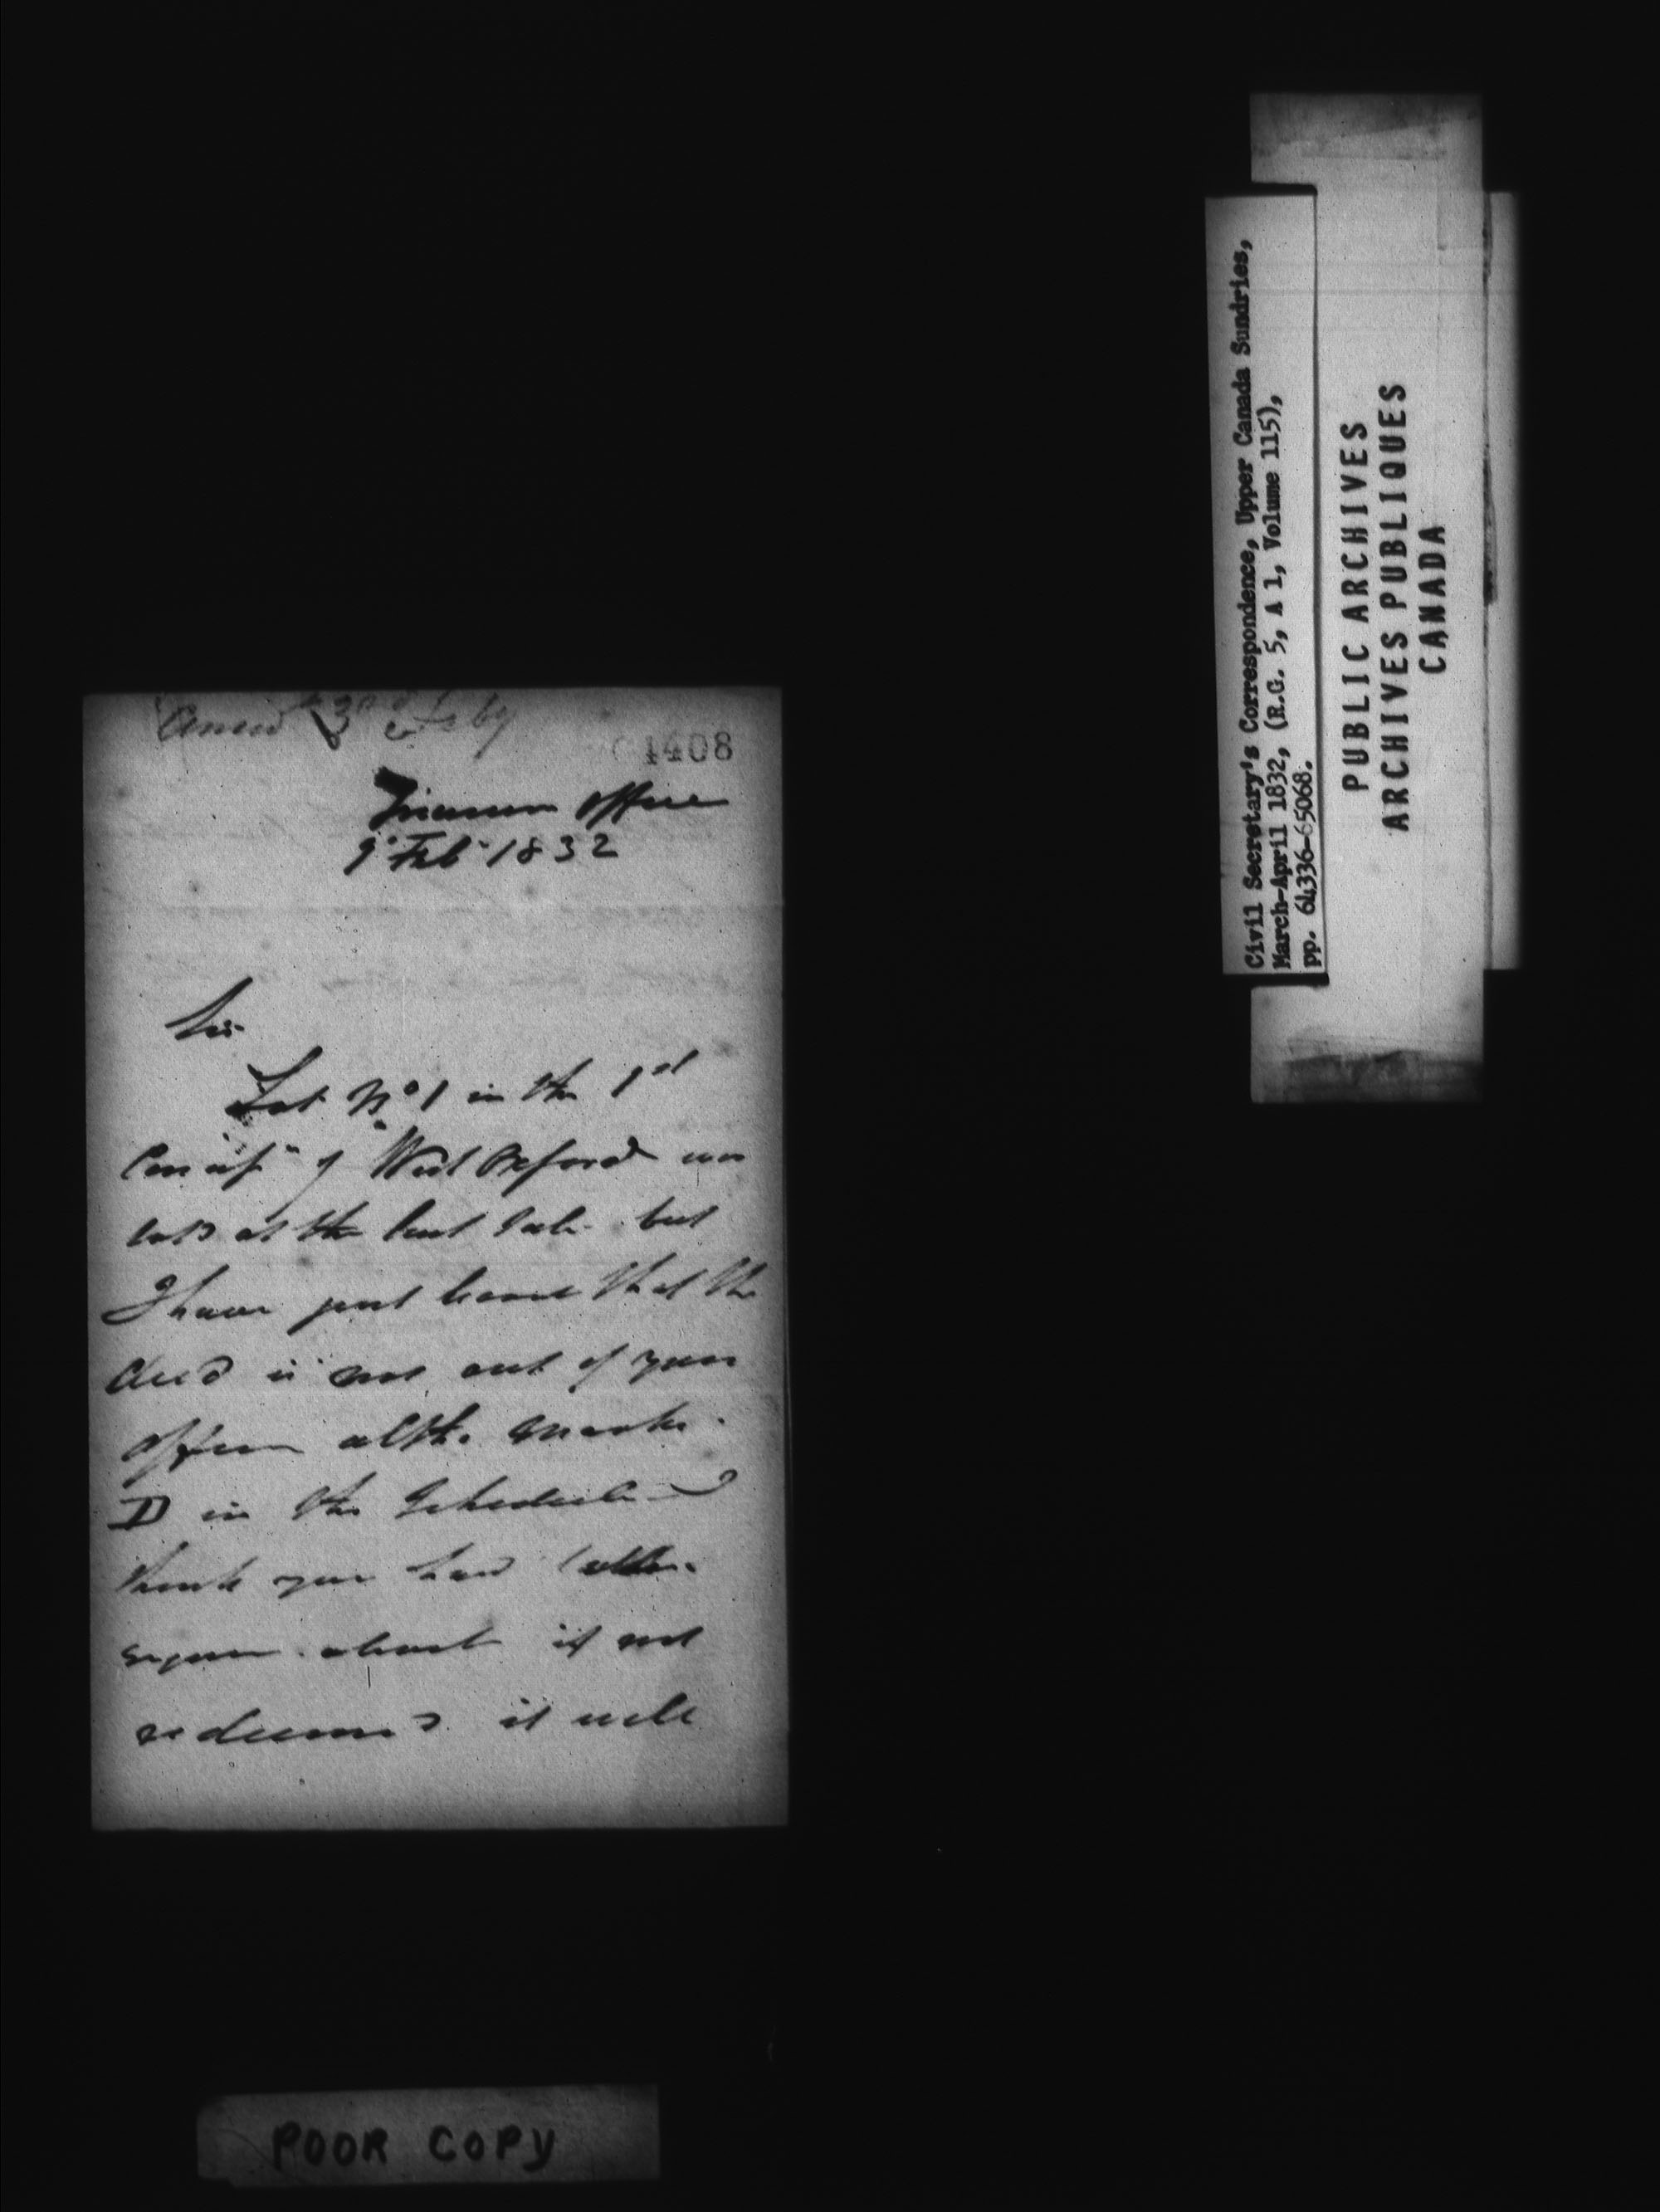 4408
Office
9 Feb 1832
Sir
Lot No 1 in the 1st
Concess of West Oxford was
sold at the last Sale but
I have just learnt that the
deed is not out of your
Office altho marked
D in the Schedule I
think you had better
enquire about it not
redeemed it will
POOR COPY
Civil Secretary's Correspondence, Upper Canada Sundries,
March-April 1832, (R.G. 5, A 1, Volume 115),
pp. 64336-65068.
PUBLIC ARCHIVES
ARCHIVES PUBLIQUES
CANADA